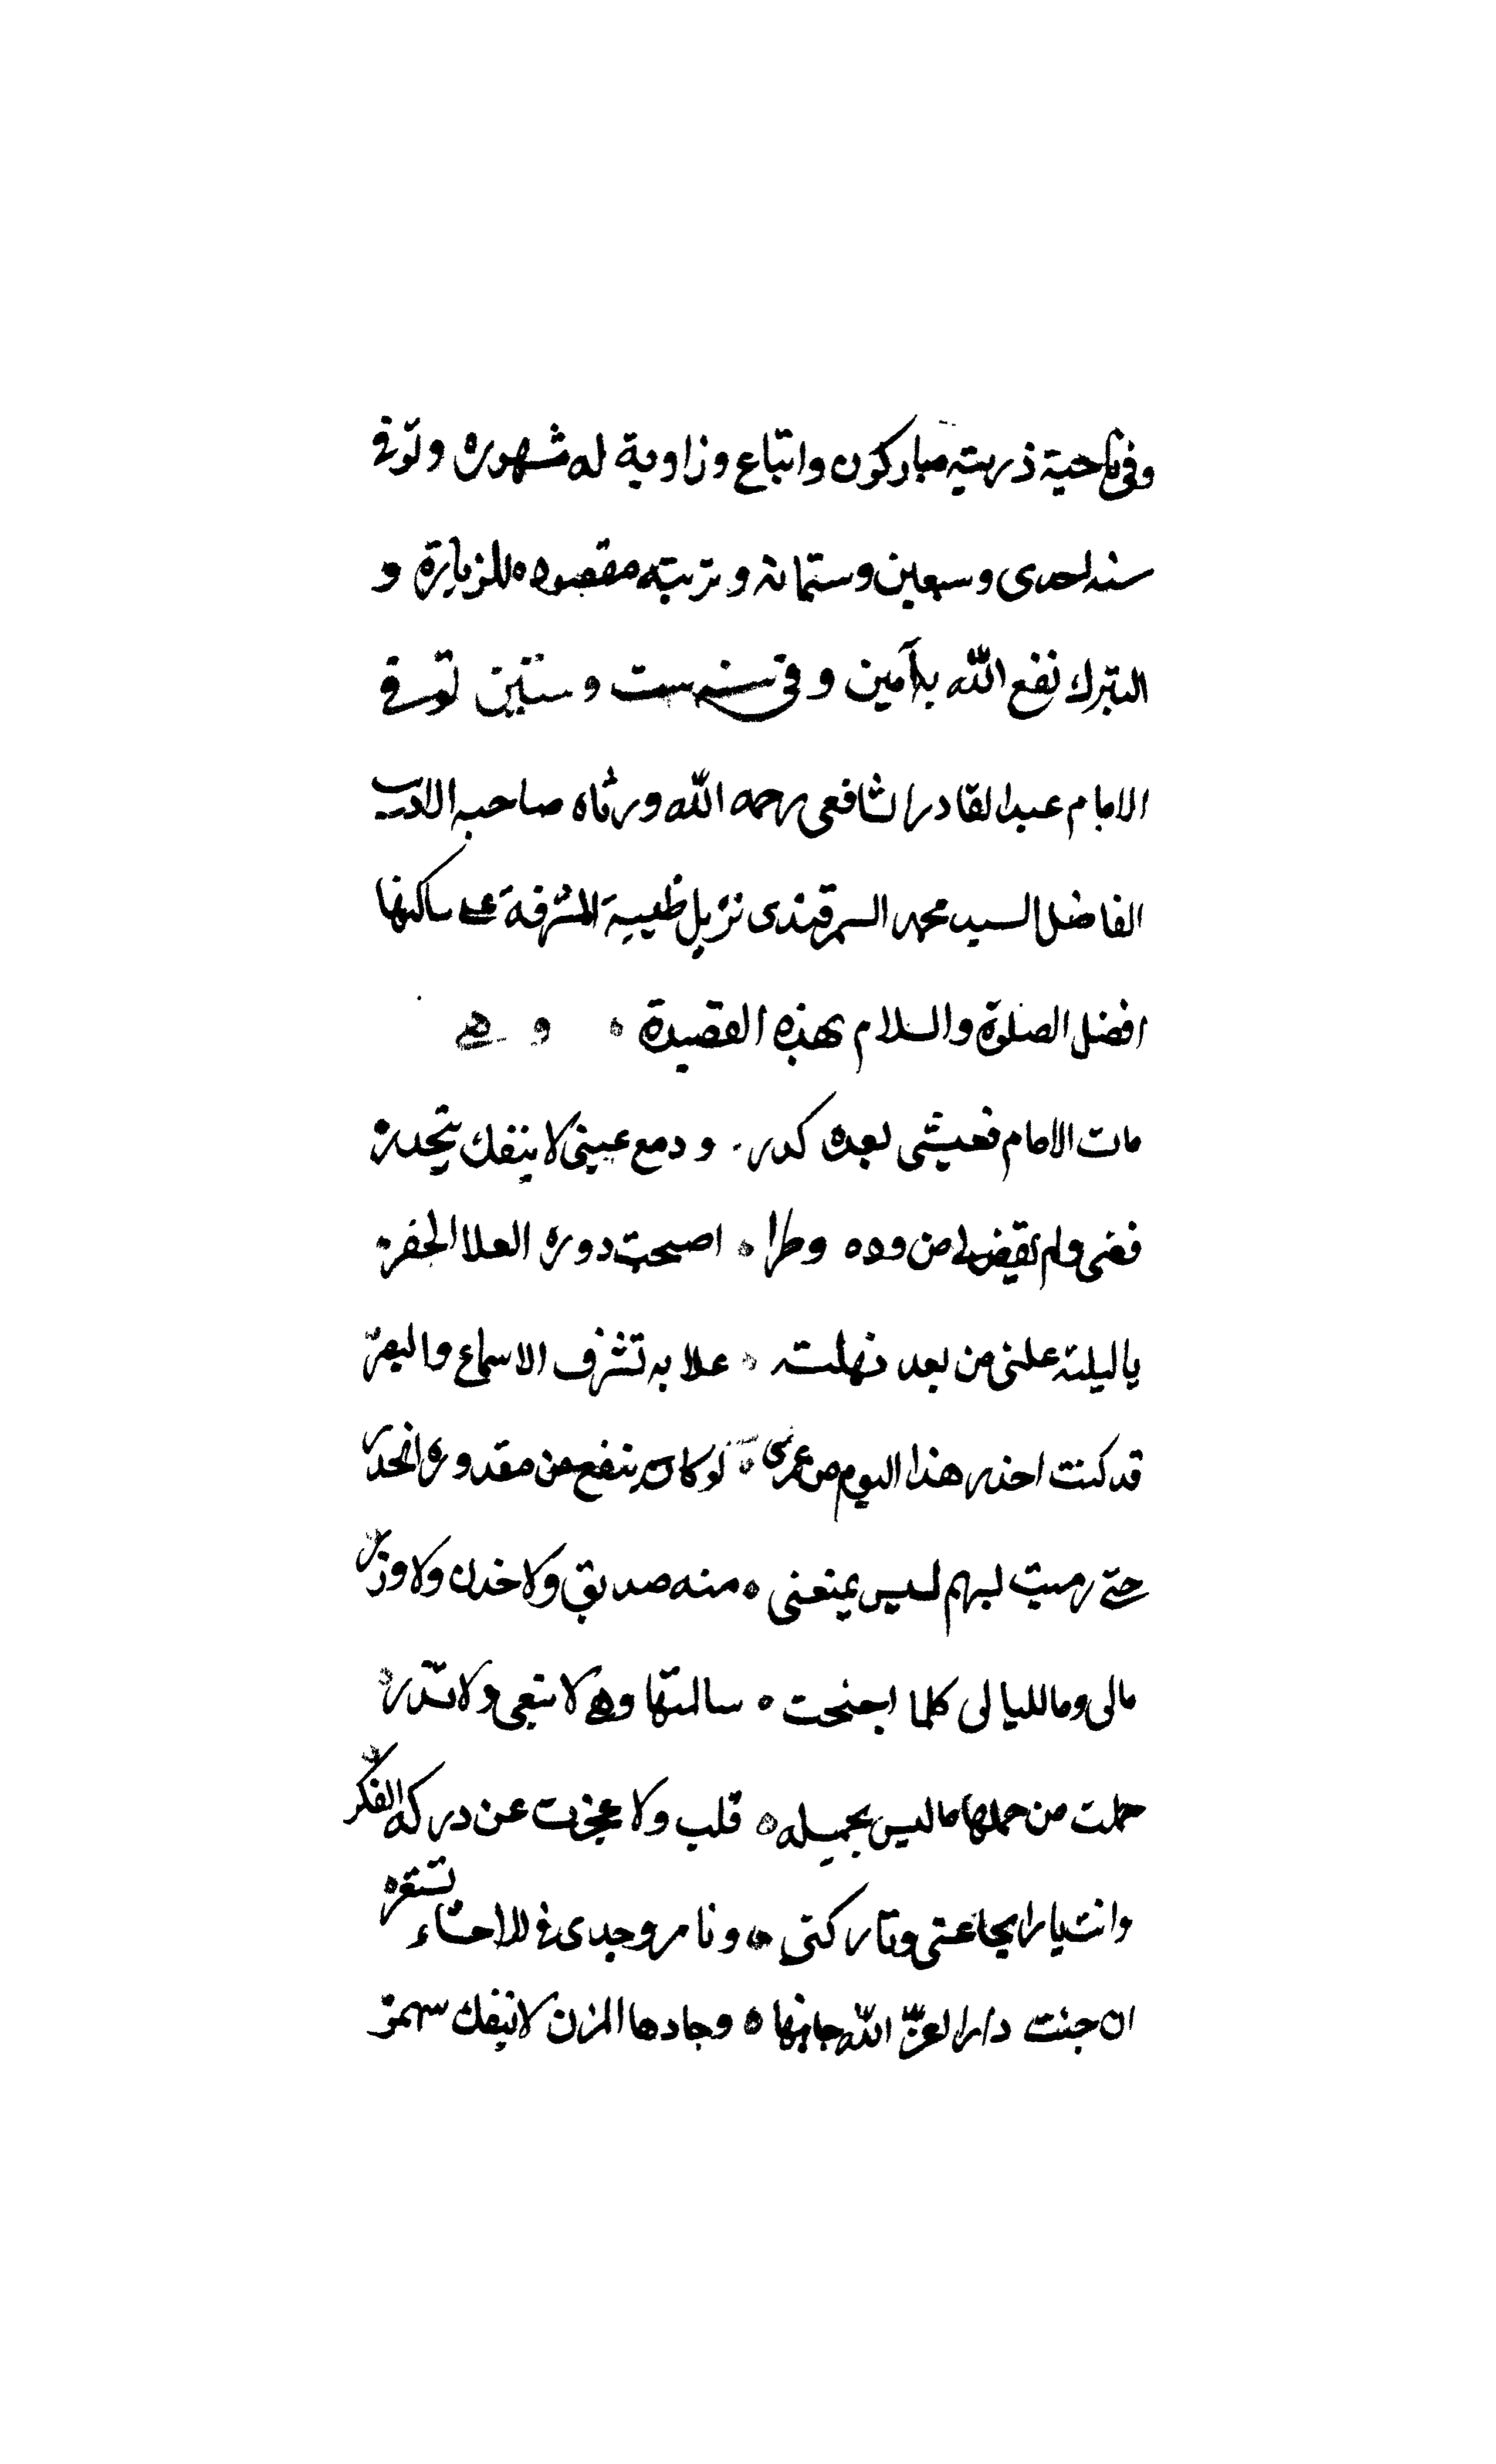 وفي ناحية ذريته مباركون واتباع وزاوية له شهوره وتوفي
سنه احدى وسبعين وستمائه وتربته مقصوده للزيارة و
التبرك نفع الله به آمين وفي سنه ست وستين توفي
الامام عبد القادر الشافعي رحمه الله ورثاه صاحبه الاديب
الفاضل السيد محمد السمرقندى نزيل طيبة المشرفة على ساكنها
افضل الصلوة والسلام بهذه القصيدة ه وهي
مات الامام فعيشى بعده كدر . ودمع عيني لا ينفك ينحدر
قضى ولم يقض لي من وده وطرا ه اصبحت دوره العلا الحفر
يا ليلته علنى من بعد نهلته ه علا به تشرف الاسماع والبصر
قد كنت احذر هذا اليوم من عمرى ه لو كان ينفع من مقدوره الحذر
حتى رميت بسهم ليس يمنعنى ه منه صديق ولا خدن ولا وزر
مالى وما لليالى كلما اجنحت ه سالمتها وهي لا تبقى ولا تذر
حملت من حملها ما ليس يحمله ه قلب ولا عجزت عن دركه الفكر
وانت يا رايحا عنى وتاركتي ه ونار وجدى في الاحشاء تستعر
ان جئت دار العز الله جانبها ه وجادها المزن لا ينفك ينهمر